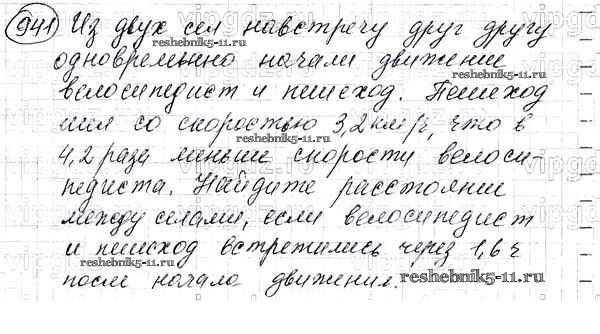 941 Из двух сел навстречу друг другу
reshebnik5-11.ru
одновременно начали движение
велосипедист и пешеход. Пешеход
шел со скоростью 3,2 км/ч, что в
reshebnik5-11.ru
4,2 раза меньше скорости велоси-
педиста. Найдите расстояние
между селами, если велосипедист
и пешеход встретились через 1,6 ч
reshebnik5-11.ru
после начала движения.
reshebnik5-11.ru